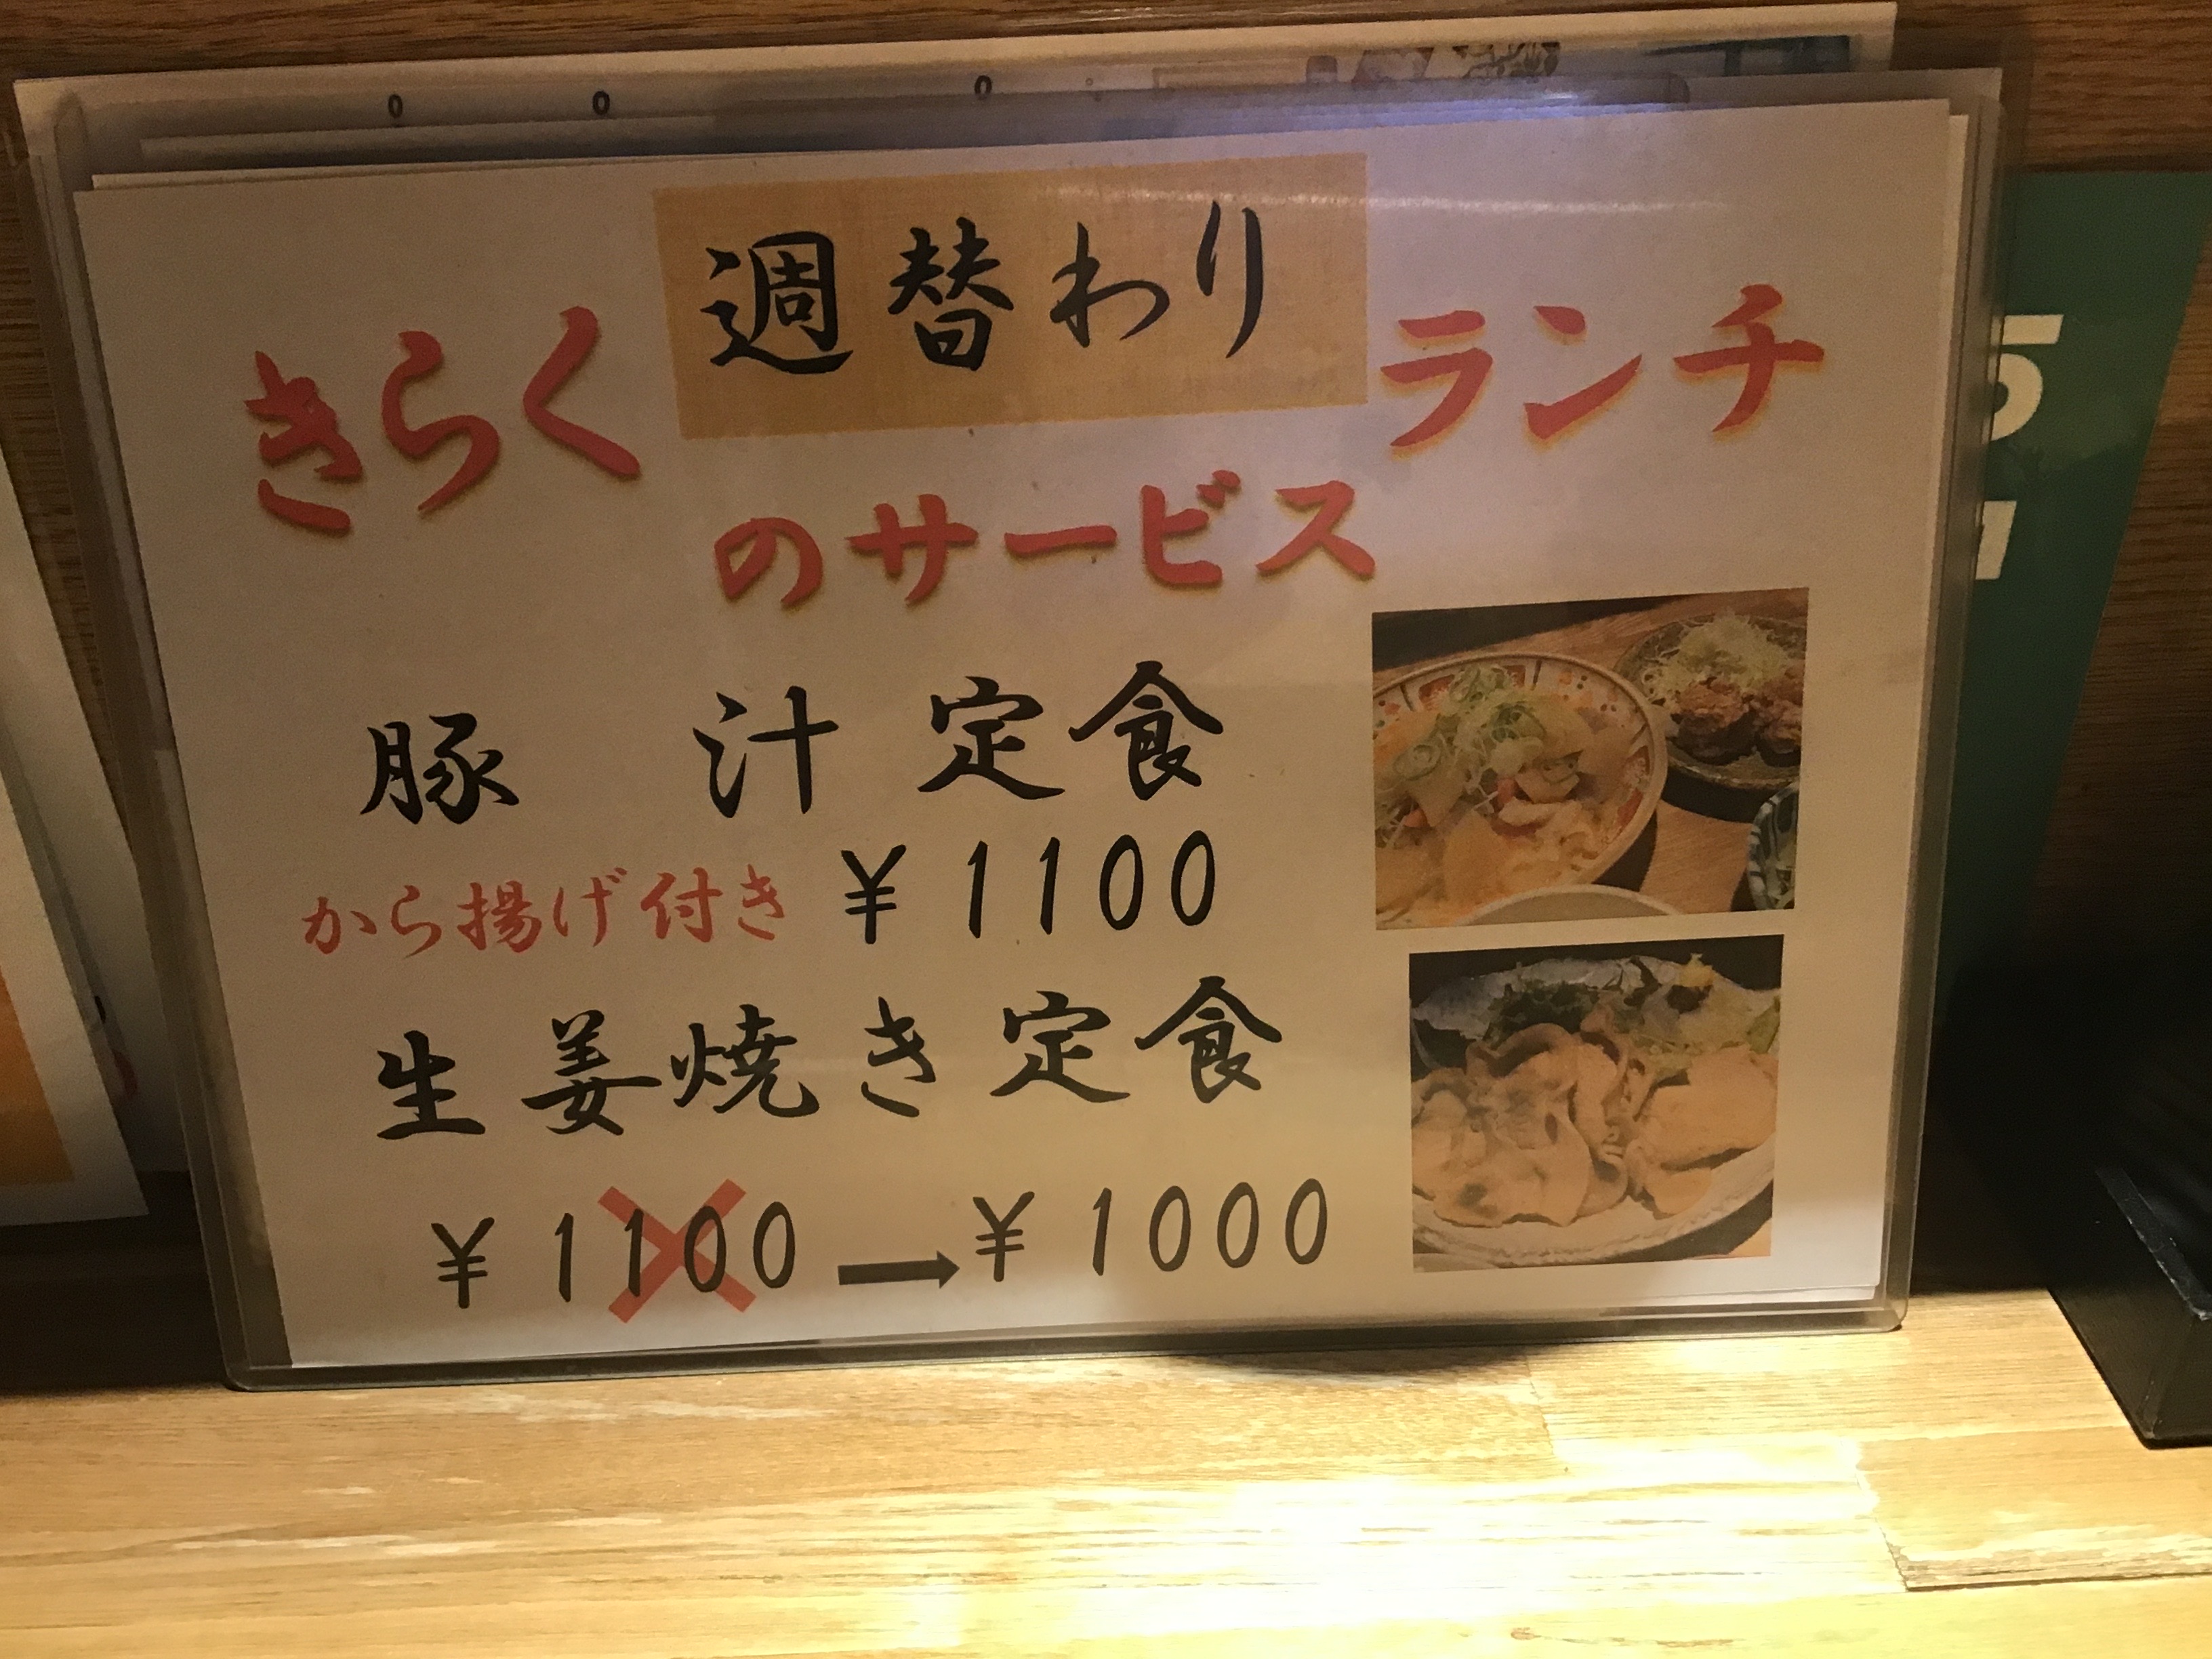 週替わり
きらく ランチ
のサービス
豚 汁 定食
から揚げ付き ¥1100
生姜焼き定食
¥1100→¥1000
5
1